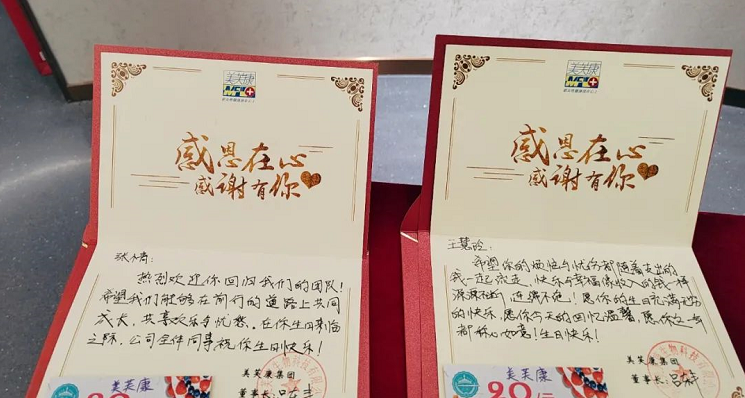 美芙康
感恩在心
感谢有你
热烈欢迎你回归我们的团队!
希望我们能够在前行的道路上共同
成长,共享欢乐与忧愁。在你生日来临
之际,公司全体同事祝你生日快乐!
美芙康集团
董事长:
美芙康
20元
美芙康
感恩在心
感谢有你
希望你的烦恼与忧伤都随着支出的
钱一起流走,快乐与幸福像收入的钱一样
源源不断,连绵不绝!愿你的生日充满无穷
的快乐,愿你今天的回忆温馨,愿你这一年
都称心如意!生日快乐!
美芙康集团
董事长:
美芙康
20元